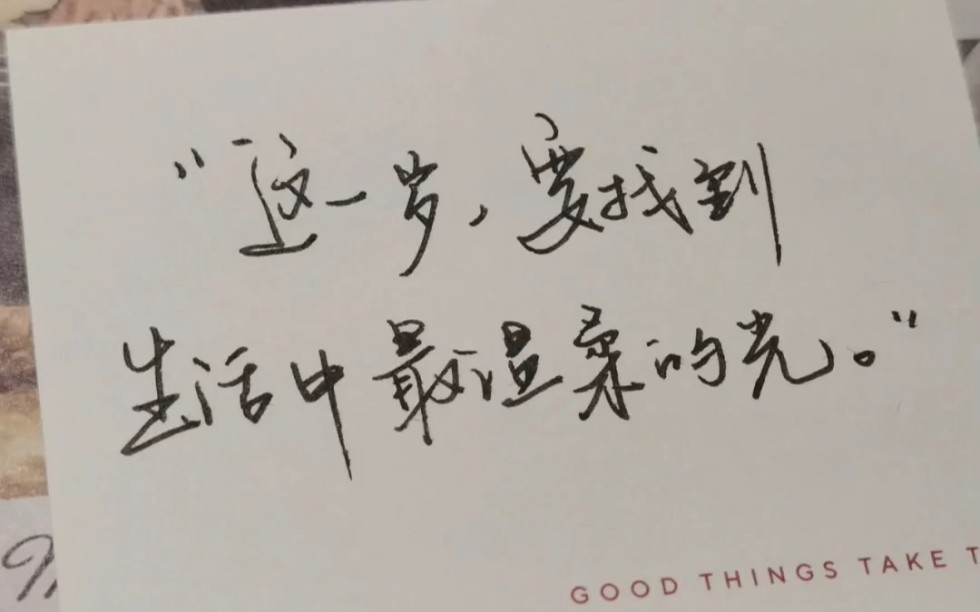 “这一岁，要找到
生活中最温柔的光。”
GOOD THINGS TAKE T